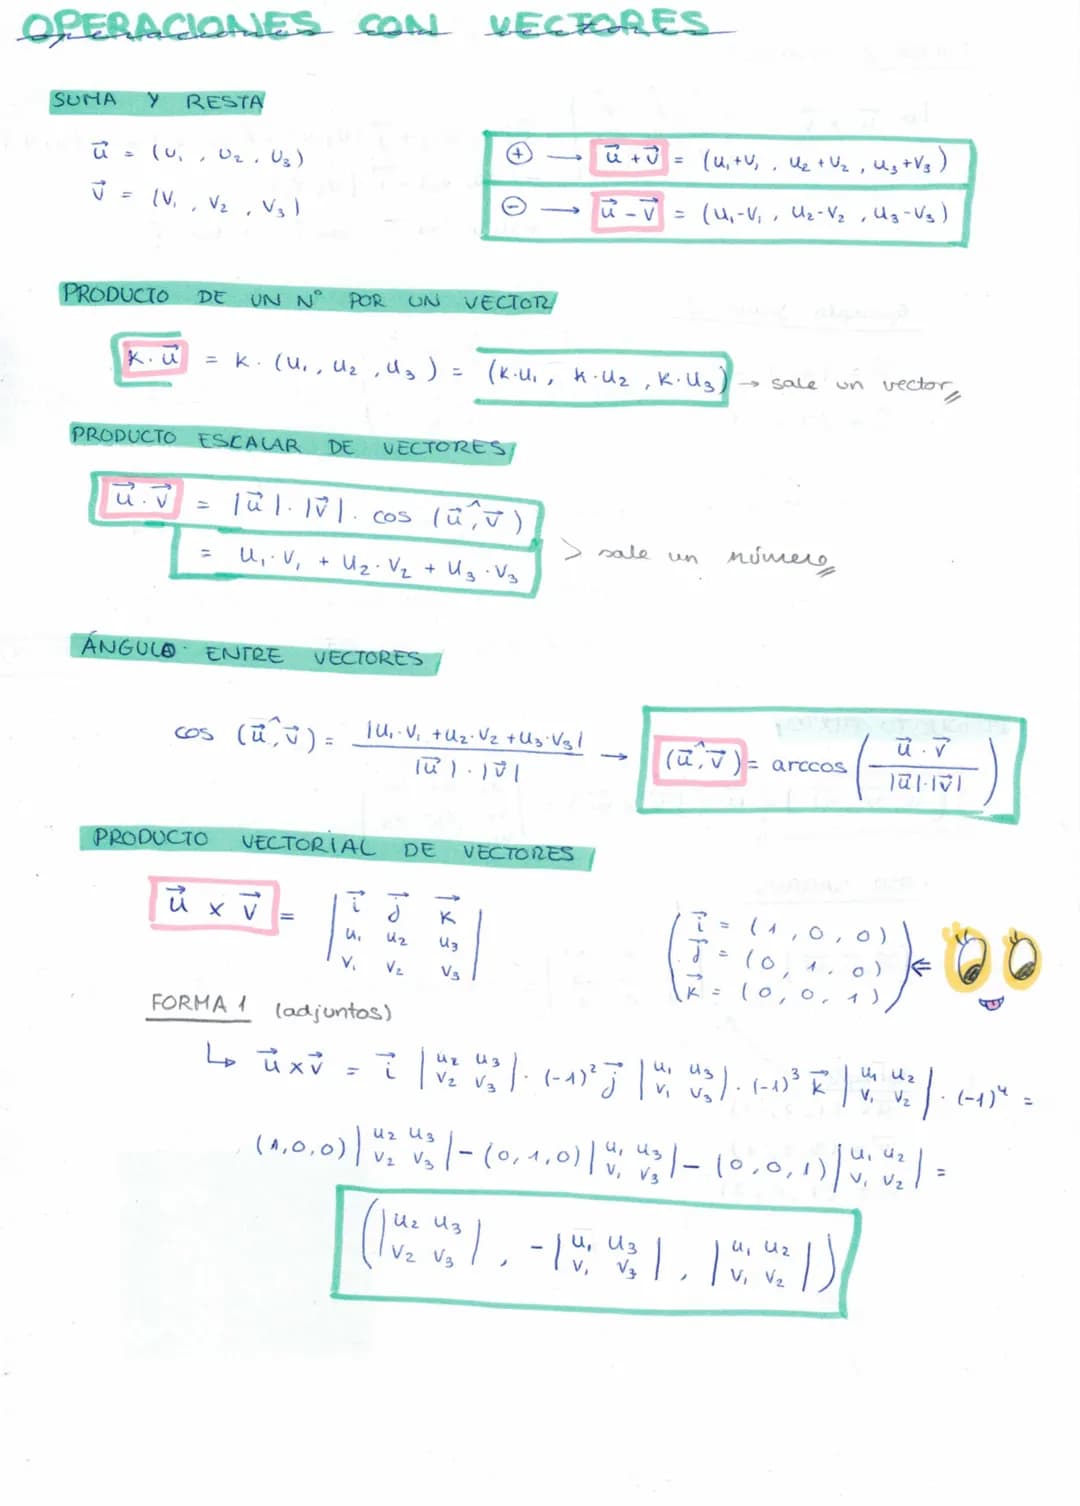 OPERACIONES CON VECTORES
SUMA Y RESTA
u⃗ = (u₁, u₂, u₃)
v⃗ = (v₁, v₂, v₃)
⊕ → u⃗ + v⃗ = (u₁+v₁, u₂+v₂, u₃+v₃)
⊖ → u⃗ - v⃗ = (u₁-v₁, u₂-v₂, u₃-v₃)
PRODUCTO DE UN Nº POR UN VECTOR
k · u⃗ = k · (u₁, u₂, u₃) = (k·u₁, k·u₂, k·u₃) → sale un vector
PRODUCTO ESCALAR DE VECTORES
u⃗ · v⃗ = |u⃗| · |v⃗| · cos (u⃗,^v⃗)
= u₁·v₁ + u₂·v₂ + u₃·v₃ > sale un número
ÁNGULO ENTRE VECTORES
cos (u⃗,^v⃗) = |u₁·v₁ + u₂·v₂ + u₃·v₃| / |u⃗| · |v⃗| → (u⃗,^v⃗) = arccos (u⃗ · v⃗ / |u⃗|·|v⃗|)
PRODUCTO VECTORIAL DE VECTORES
u⃗ x v⃗ = | i⃗ j⃗ k⃗ |
| u₁ u₂ u₃ |
| v₁ v₂ v₃ |
( i⃗ = (1, 0, 0)
j⃗ = (0, 1, 0)
k⃗ = (0, 0, 1) ) ⇐
FORMA 1 (adjuntos)
↳ u⃗ x v⃗ = i⃗ |u₂ u₃ / v₂ v₃| · (-1)² j⃗ |u₁ u₃ / v₁ v₃| · (-1)³ k⃗ |u₁ u₂ / v₁ v₂| · (-1)⁴ =
(1,0,0) |u₂ u₃ / v₂ v₃| - (0,1,0) |u₁ u₃ / v₁ v₃| - (0,0,1) |u₁ u₂ / v₁ v₂| =
(|u₂ u₃ / v₂ v₃|, -|u₁ u₃ / v₁ v₃|, |u₁ u₂ / v₁ v₂|)